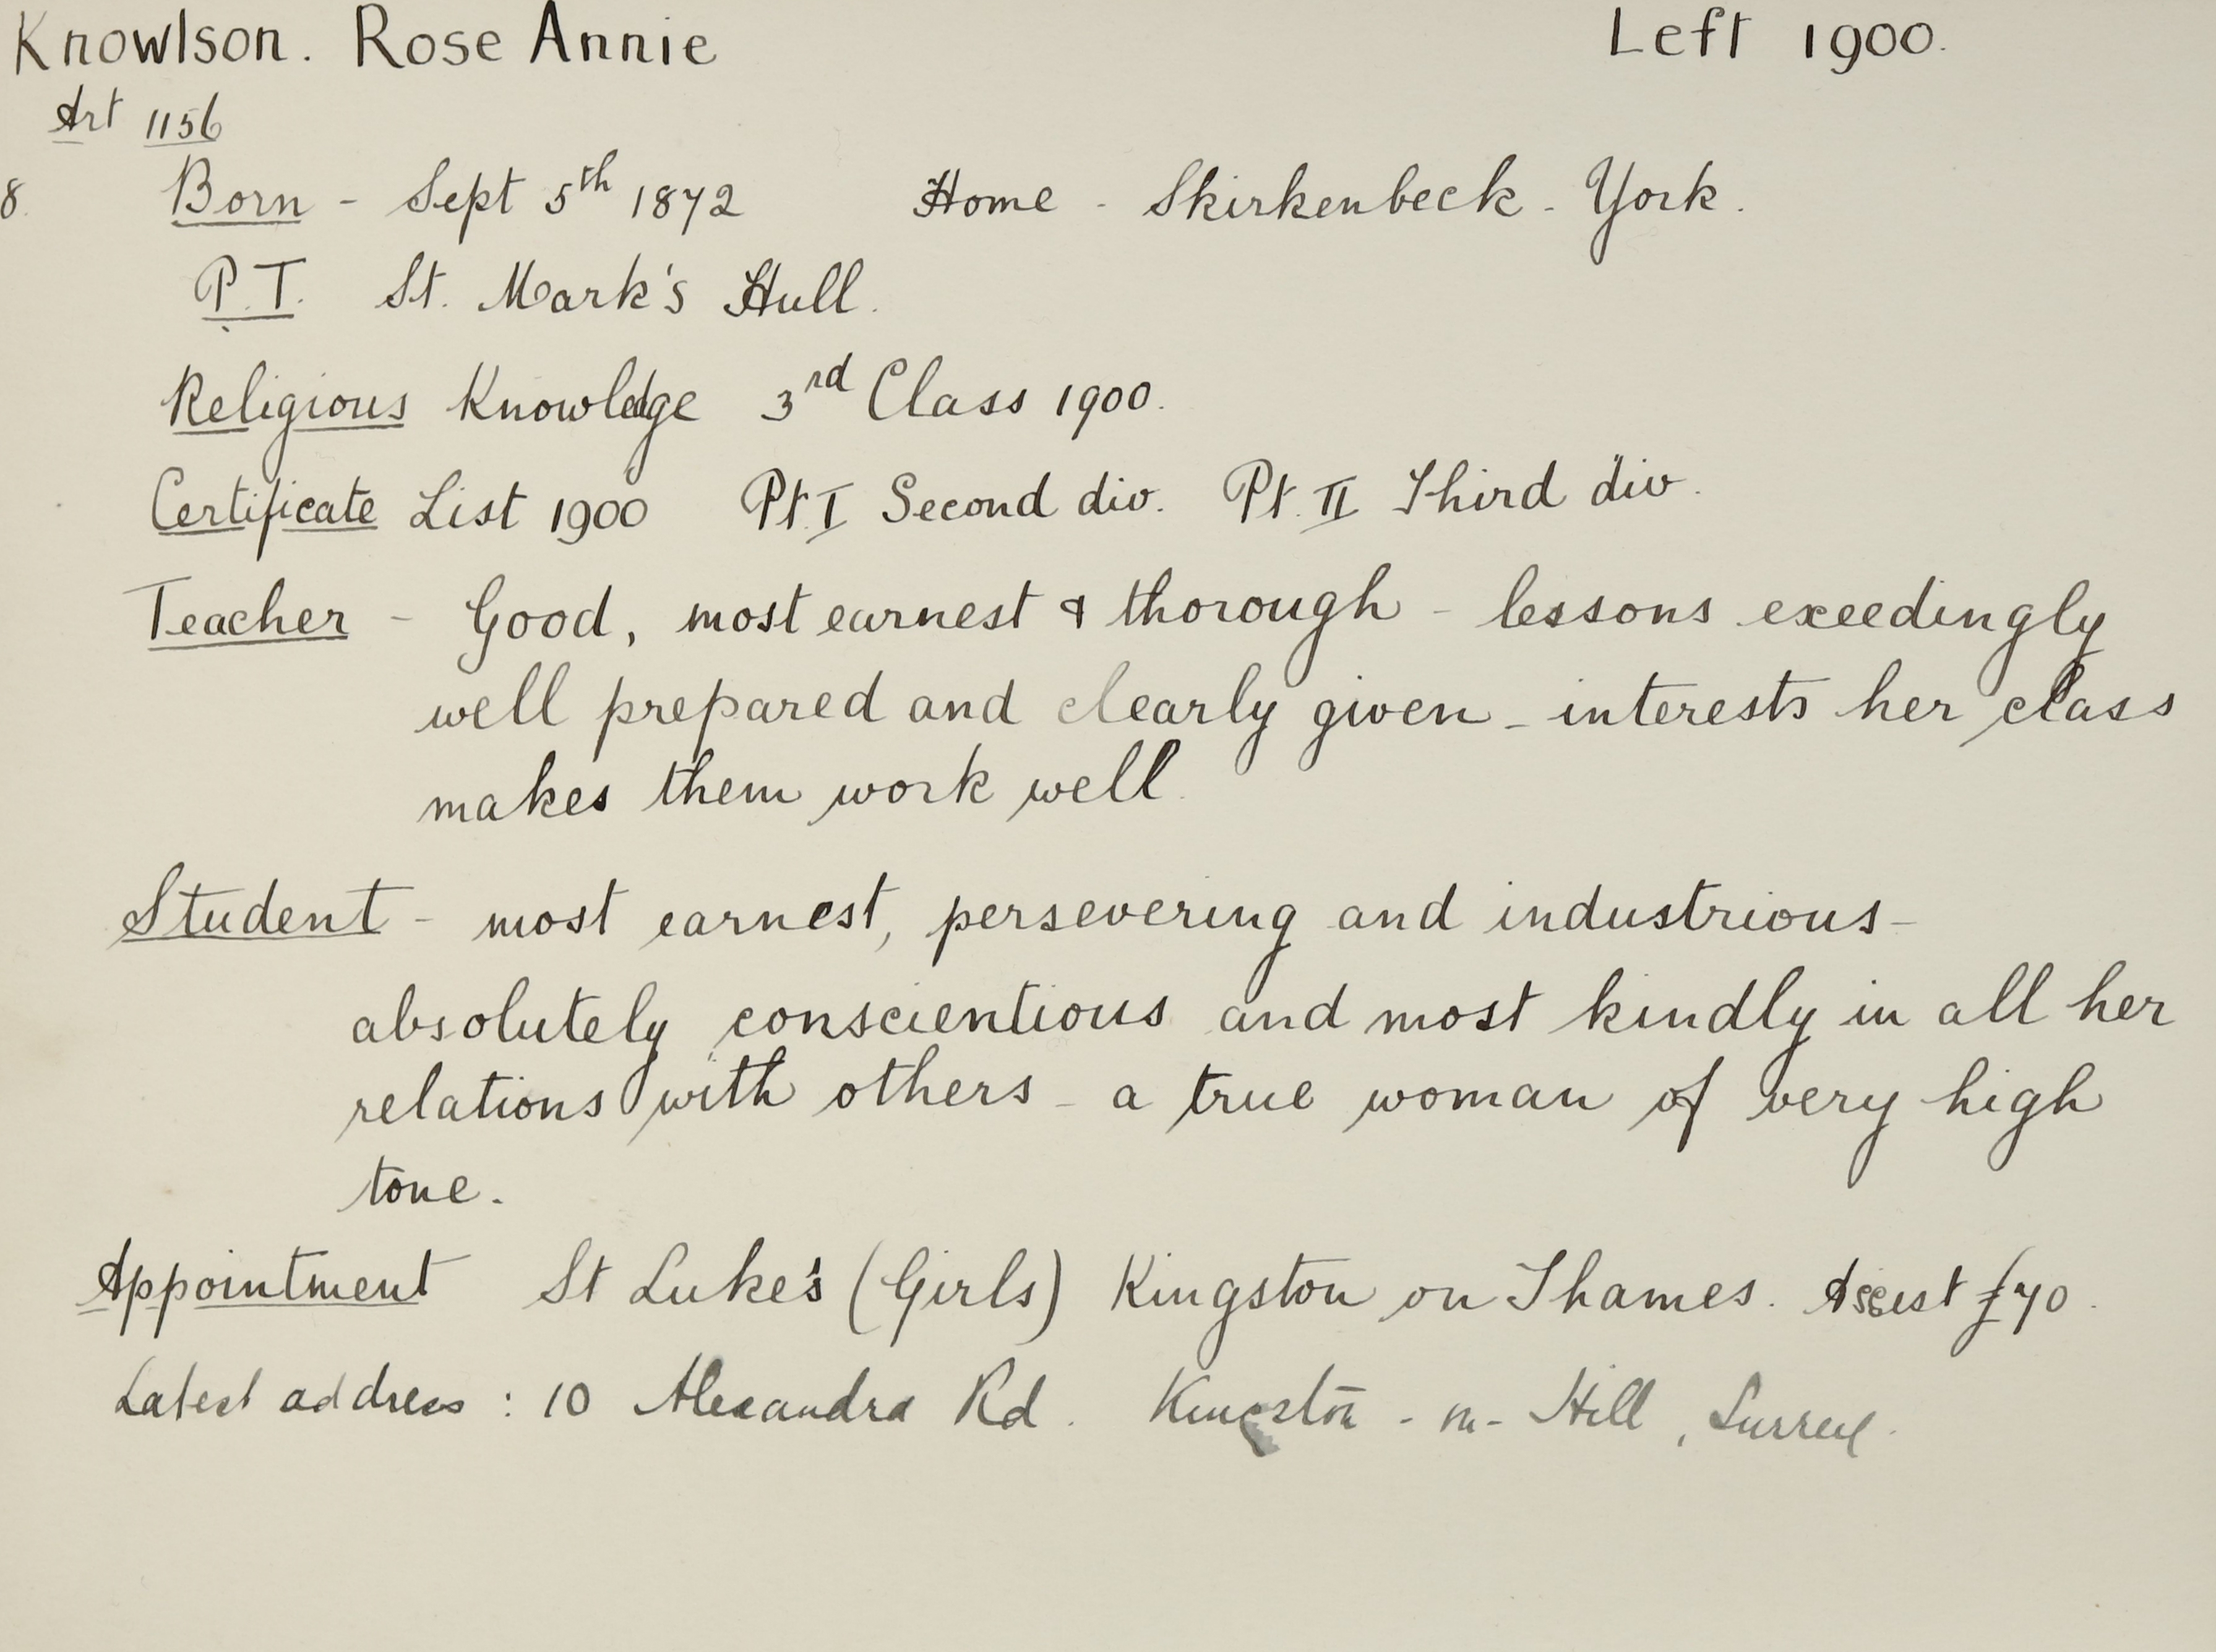 Knowlson. Rose Annie Left 1900.
Art 1156
8. Born - Sept 5th 1872 Home - Skirkenbeck - York.
P.T. St. Mark's Hull.
Religious Knowledge 3rd Class 1900.
Certificate List 1900 Pt. I Second div. Pt. II Third div.
Teacher - Good, most earnest & thorough - lessons exeedingly
well prepared and clearly given - interests her class
makes them work well.
Student - most earnest, persevering and industrious -
absolutely conscientious and most kindly in all her
relations with others - a true woman of very high
tone.
Appointment St Luke's (Girls) Kingston on Thames. Assist £70.
Latest address : 10 Alexandra Rd. Kingston - on - Hill, Surrey.